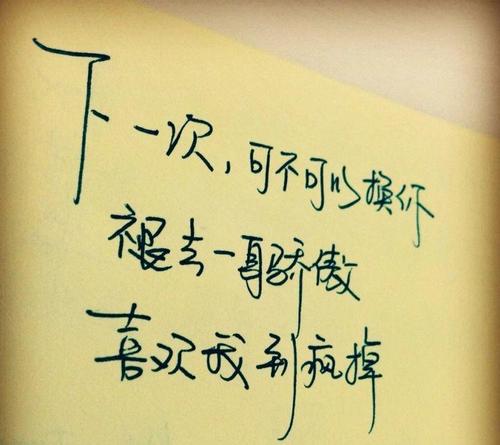 下一次，可不可以换你
褪去一身骄傲
喜欢我到疯掉